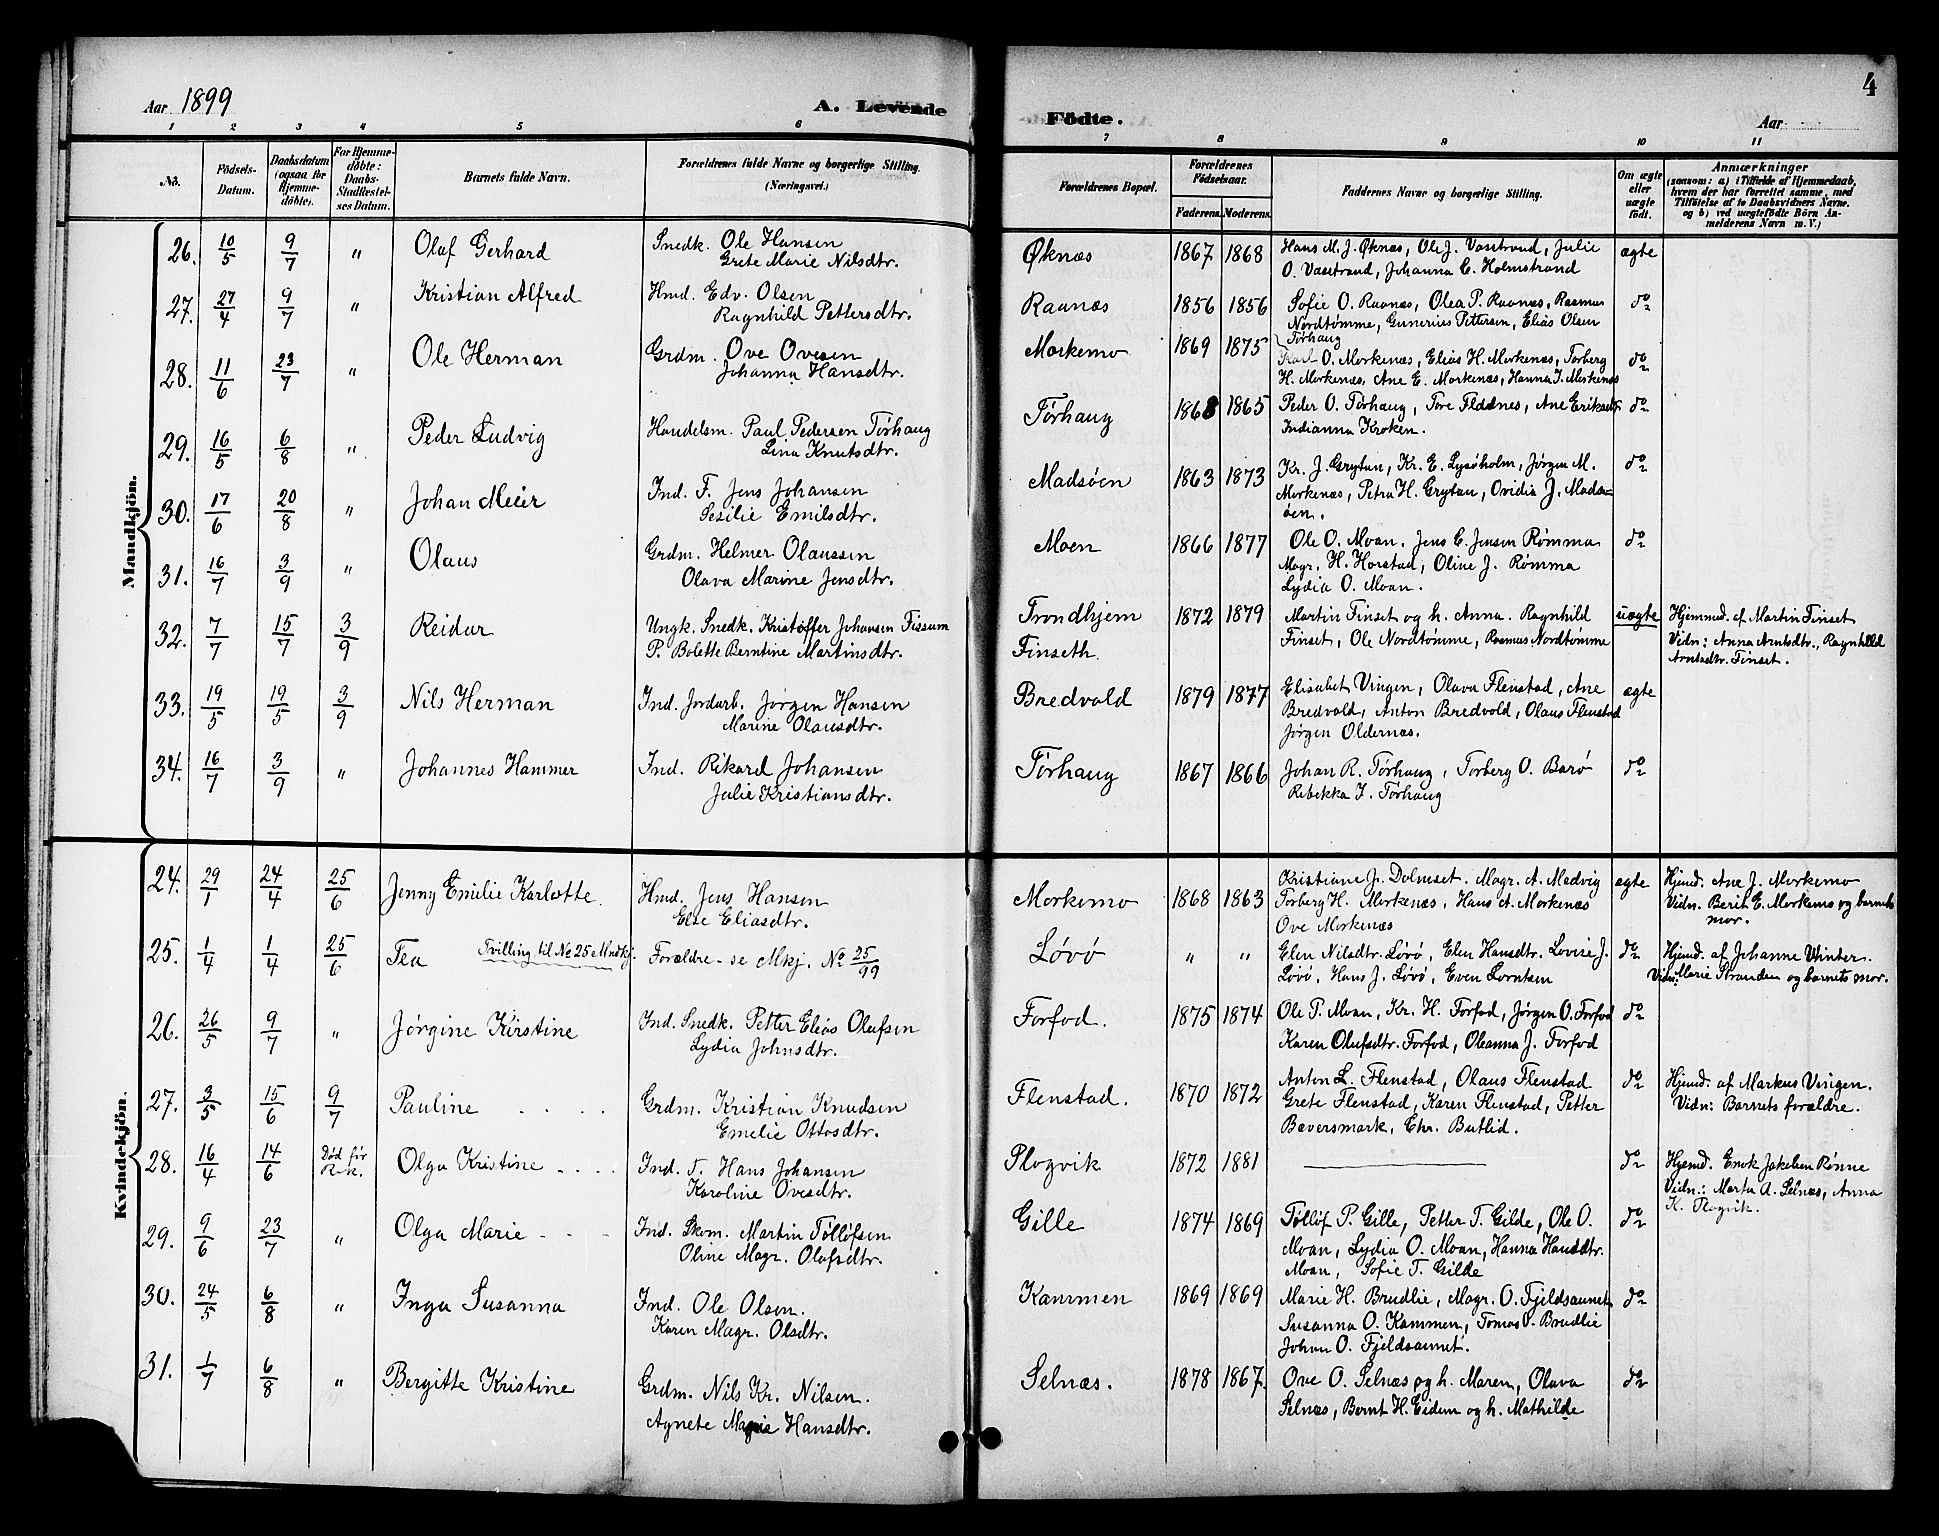 Aar 1899
A. Levende Födte.
Aar
4
1 2 3 4 5 6 7 8 9 10 11
No.
Födsels-Datum.
Daabsdatum (ogsaa for Hjemme-döbte).
For Hjemme-döbte: Daabs-Stadfæstel-ses Datum.
Barnets fulde Navn.
Forældrenes fulde Navne og borgerlige Stilling. (Næringsvei.)
Forældrenes Bopæl.
Forældrenes Födselsaar.
Faderens. Moderens.
Faddernes Navne og borgerlige Stilling.
Om ægte eller uægte födt.
Anmærkninger
(saasom: a) i Tilfælde af Hjemmedaab, hvem der har forrettet samme, med Tilföielse af to Daabsvidners Navne. og b) ved uægtefödte Börn An-melderens Navn m. V.)
Mandkjön.
26. 10/5 9/7 " Olaf Gerhard Snedk. Ole Hansen Øknæs 1867 1868 Hans M. J. Øknæs, Ole J. Vasstrand, Julie ægte
Grete Marie Nilsdtr. O. Vasstrand, Johanna C. Holmstrand
27. 27/4 9/7 " Kristian Alfred Hmd. Edv. Olsen Raanæs 1856 1856 Sofie O. Raanæs, Olea P. Raanæs, Rasmus do
Ragnhild Pettersdtr. Nordtømme, Gunerius Pettersen, Elias Olsen
Tørhaug
28. 11/6 23/7 " Ole Herman Grdm. Ove Ovesen Morkemo 1869 1875 Karl O. Morkenæs, Elias H. Morkenæs, Torberg do
Johanna Hansdtr. H. Morkenæs, Ane E. Morkenæs, Hanna J. Morkenæs
29. 16/5 6/8 " Peder Ludvig Handelsm. Paul Pedersen Tørhaug Tørhaug 1868 1865 Peder O. Tørhaug, Tore Fladnes, Ane Eriksdtr do
Lina Knutsdtr. Indianna Kroken.
30. 17/6 20/8 " Johan Meier Ind. F. Jens Johansen Madsøen 1863 1873 Kr. J. Grytan, Kr. E. Lysøholm, Jørgen M. do
Sesilie Emilsdtr. Morkenæs, Petra H. Grytan, Ovidia J. Mads-
øen.
31. 16/7 3/9 " Olaus Grdm. Helmer Olaussen Moen 1866 1877 Ole O. Moan. Jens C. Jensen Rømma do
Olava Marine Jensdtr. Magr. H. Horstad, Oline J. Rømma
Lydia O. Moan.
32. 7/7 15/7 3/9 Reidar Ungk. Snedk. Kristoffer Johansen Fissum Trondhjem 1872 1879 Martin Finset og h. Anna. Ragnhild uægte Hjemmd. af Martin Finset
P. Bolette Berntine Martinsdtr. Finseth. Finset, Ole Nordtømme, Rasmus Nordtømme Vidn: Anna Arntsdtr., Ragnhild
Arntsdtr. Finset.
33. 19/5 19/5 3/9 Nils Herman Ind. Jordarb. Jørgen Hansen Bredvold 1879 1877 Elisabet Vingen, Olava Flenstad, Ane ægte
Marine Olausdtr. Bredvold, Anton Bredvold, Olaus Flenstad
Jørgen Oldernæs.
34. 16/7 3/9 " Johannes Hammer Ind. Rikard Johansen Tørhaug 1867 1866 Johan R. Tørhaug, Torberg O. Barø do
Julie Kristiansdtr. Rebekka J. Tørhaug
Kvindekjön.
24. 29/1 24/4 25/6 Jenny Emilie Karlotte. Hmd. Jens Hansen Morkemo 1868 1863 Kristiane J. Dolmset. Magr. A. Medvig ægte Hjemd. Ane J. Morkemo
Else Eliasdtr. Torberg H. Morkenæs, Hans A. Morkenæs Vidn. Berit E. Morkemo og barnets
Ove Morkenæs mor.
25. 1/4 1/4 25/6 Tea Tvilling til No 25 Mndkj. Forældre - se Mkj. No 25/99 Løvø " " Elen Nilsdtr. Løvø, Elen Hansdtr. Lovise J. do Hjemd. af Johanne Winter.
Løvø, Hans J. Løvø, Even Lorntsen Vidn: Marie Stranden og barnets mor.
26. 26/5 9/7 " Jørgine Kirstine Ind. Snedk. Petter Elias Olufsen Forfod. 1875 1874 Ole P. Moan, Kr. H. Forfod, Jørgen O. Forfod do
Lydia Johnsdtr. Karen Olufsdtr. Forfod, Oleanna J. Forfod
27. 3/5 15/6 9/7 Pauline Grdm. Kristian Knudsen Flenstad. 1870 1872 Anton L. Flenstad, Olaus Flenstad do Hjemd. af Markus Vingen.
Emelie Ottosdtr. Grete Flenstad, Karen Flenstad, Petter Vidn: Barnets forældre.
Bæversmark, Chr. Butlid.
28. 16/4 14/6 Død før Olga Kristine Ind. F. Hans Johansen Plogvik 1872 1881 do Hjemd. Enok Jakobsen Rønne
Karoline Ovesdtr. Vidn.: Marta A. Selnæs, Anna
K. Plogvik.
29. 9/6 23/7 " Olga Marie Ind. Skom. Martin Tølløfsen Gille 1874 1869 Tølløf P. Gille, Petter T. Gilde, Ole O. do
Oline Magr. Olafsdtr. Moan, Lydia O. Moan, Hanna Hansdtr.
Moan, Sofie T. Gilde
30. 24/5 6/8 " Inga Susanna Ind. Ole Olsen. Kammen 1869 1869 Marie H. Brudlie, Magr. O. Fjeldsaunet do
Karen Magr. Olsdtr. Susanna O. Kammen, Tomas O. Brudlie
Johan O. Fjeldsaunet.
31. 1/7 6/8 " Bergitte Kristine Grdm. Nils Kr. Nilsen. Selnæs. 1878 1867. Ove O. Selnæs og h. Maren, Olava do
Agnete Marie Hansdtr. Selnæs, Bernt H. Eidem og h. Mathilde